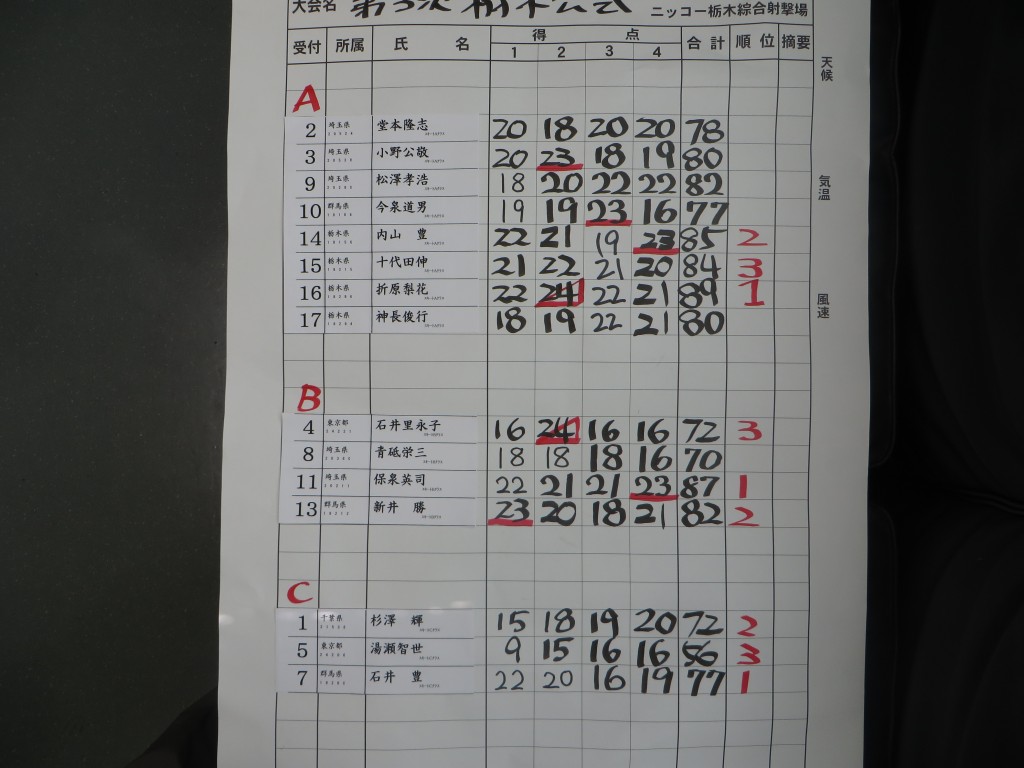 大会名 第5次 栃木公式 ニッコー栃木綜合射撃場
受付 所属 氏 名 得 点 合計 順位 摘要
1 2 3 4
天候
A
2 埼玉県 堂本隆志 20 18 20 20 78
3 埼玉県 小野公敬 20 23 18 19 80
9 埼玉県 松澤孝浩 18 20 22 22 82
気温
10 群馬県 今泉道男 19 19 23 16 77
14 栃木県 内山 豊 22 21 19 23 85 2
15 栃木県 十代田伸 21 22 21 20 84 3
16 栃木県 折原梨花 22 24 22 21 89 1
風速
17 栃木県 神長俊行 18 19 22 21 80
B
4 東京都 石井里永子 16 24 16 16 72 3
8 埼玉県 青砥栄三 18 18 18 16 70
11 埼玉県 保泉英司 22 21 21 23 87 1
13 群馬県 新井 勝 23 20 18 21 82 2
C
1 千葉県 杉澤 輝 15 18 19 20 72 2
5 東京都 湯瀬智世 9 15 16 16 56 3
7 群馬県 石井 豊 22 20 16 19 77 1